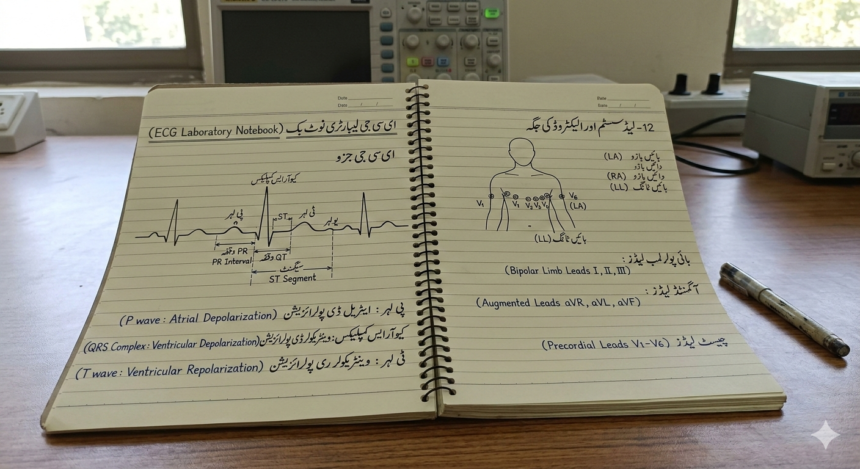 Date
Date / /
ای سی جی لیبارٹری نوٹ بک (ECG Laboratory Notebook)
ای سی جی جزو
کیو آر ایس کمپلیکس
پی لہر
ST
ٹی لہر
یو لہر
PR وقفہ
PR Interval
QT وقفہ
سیگمنٹ
ST Segment
پی لہر : ایٹریل ڈی پولرائزیشن (P wave : Atrial Depolarization)
کیو آر ایس کمپلیکس : وینٹریکولر ڈی پولرائزیشن (QRS Complex : Ventricular Depolarization)
ٹی لہر : وینٹریکولر ری پولرائزیشن (T wave : Ventricular Repolarization)
Date / /
12-لیڈ سسٹم اور الیکٹروڈ کی جگہ
بائیں بازو (LA)
دائیں بازو
دائیں بازو (RA)
بائیں ٹانگ (LL)
V₁
V₁
V₂
V₃
V₆
(LA)
بائیں ٹانگ (LL)
بائی پولر لمب لیڈز :
(Bipolar Limb Leads I, II, III)
آگمنٹڈ لیڈز :
(Augmented Leads aVR, aVL, aVF)
چیسٹ لیڈز (Precordial Leads V₁-V₆)